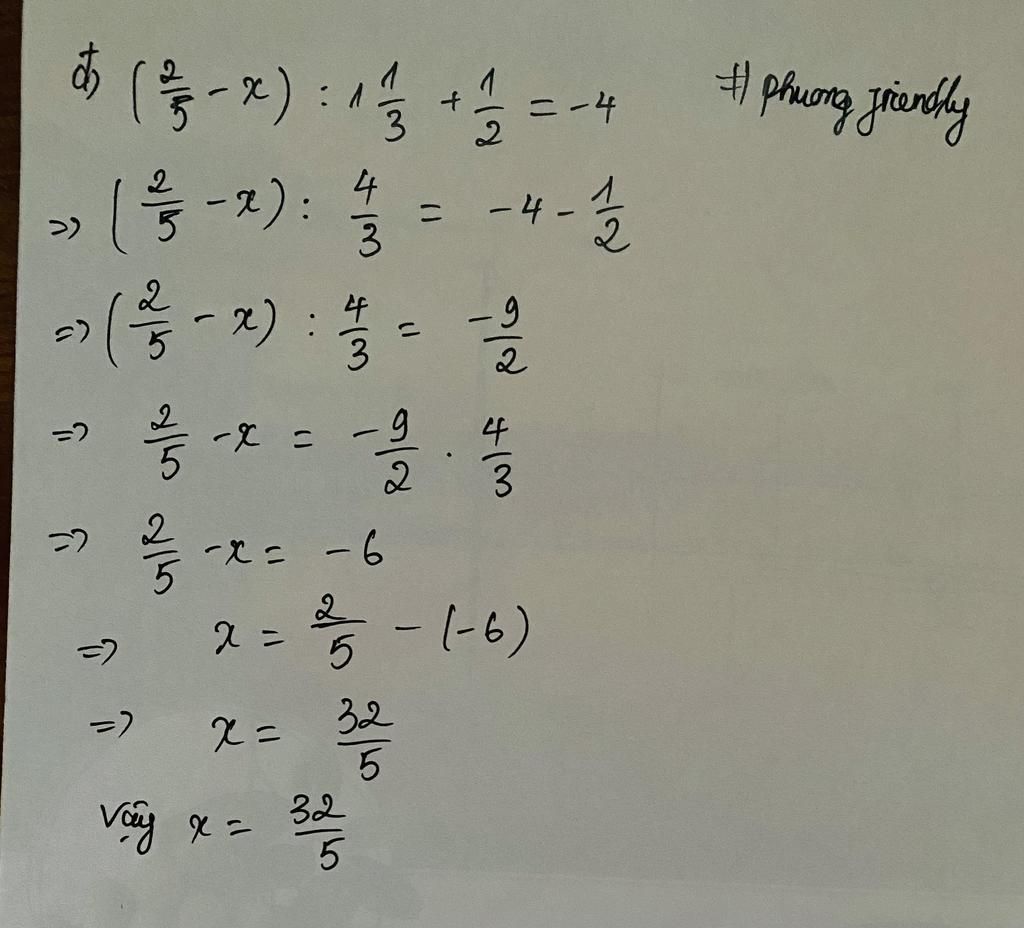 đ) (2/5 - x) : 1 1/3 + 1/2 = -4 # phuong friendly
=> (2/5 - x) : 4/3 = -4 - 1/2
=> (2/5 - x) : 4/3 = -9/2
=> 2/5 - x = -9/2 . 4/3
=> 2/5 - x = -6
=> x = 2/5 - (-6)
=> x = 32/5
Vậy x = 32/5